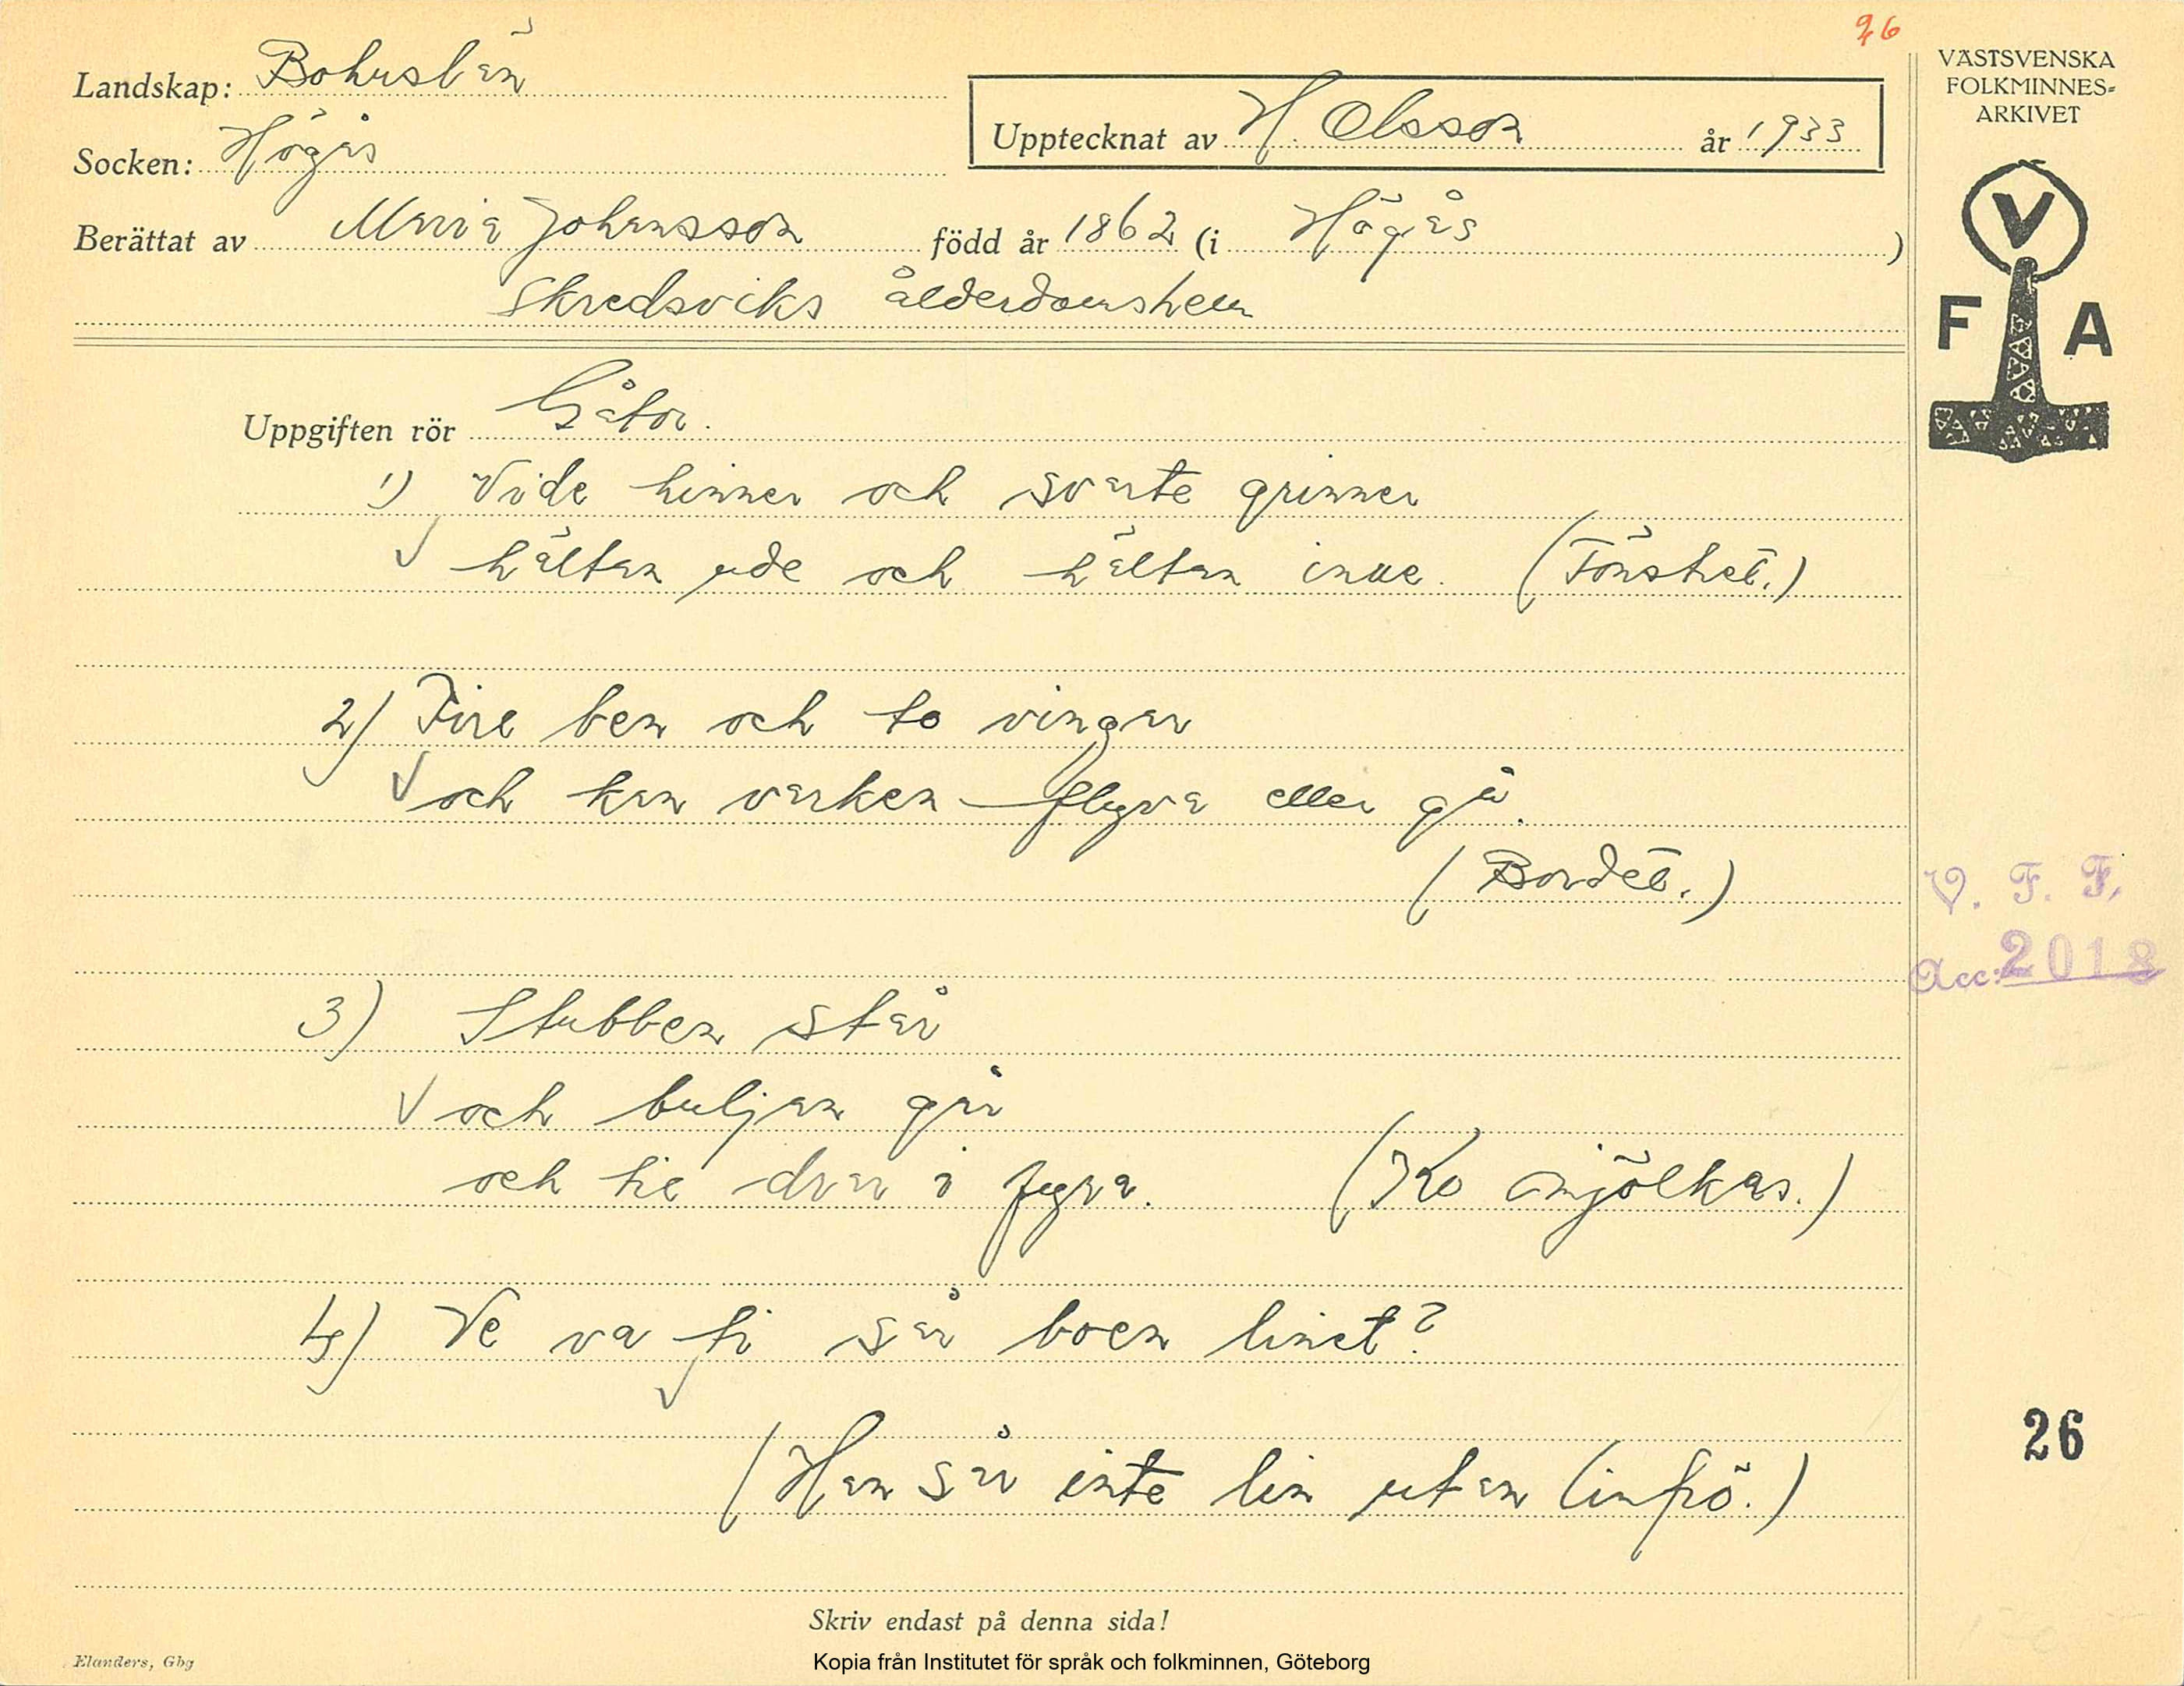 26
Landskap: Bohuslän
Socken: Högås
Upptecknat av H. Olsson år 1933
Berättat av Maria Johansson född år 1862 (i Högås)
Skredsviks ålderdomshem
VÄSTSVENSKA
FOLKMINNES-
ARKIVET
V
F A
Uppgiften rör Gåtor.
1) Vide hinner och svarte grinner
hältan ude och hältan inne. (Fönstret.)
2) Fire ben och to vingar
och kan varken flyva eller gå.
(Bordet.)
3) Stubben står
och buljan går
och tie drar i fyra. (Ko mjölkas.)
4) Ve va ti sår boen linet?
(Han sår inte lin utan linfrö.)
V. F. F.
Acc: 2018
26
Skriv endast på denna sida!
Elanders, Gbg
Kopia från Institutet för språk och folkminnen, Göteborg